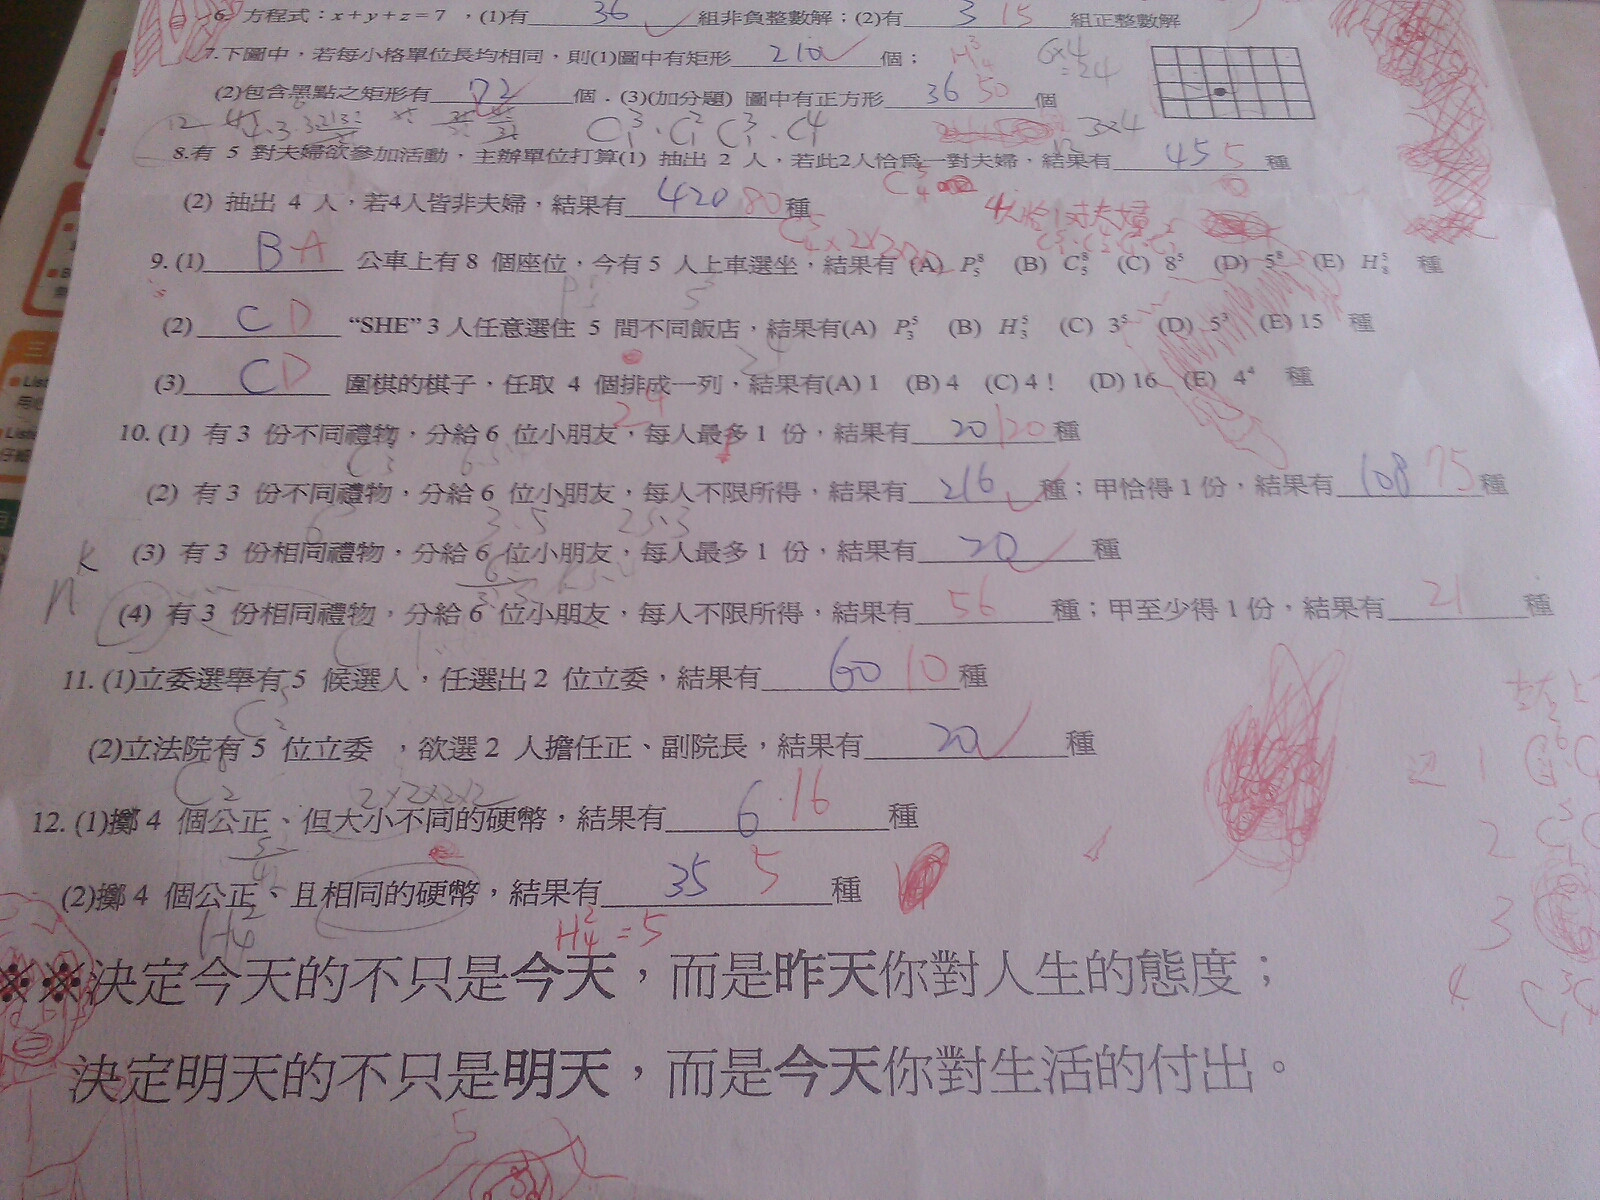 6. 方程式：x+y+z=7 ，(1)有 36 組非負整數解；(2)有 3 15 組正整數解
7.下圖中，若每小格單位長均相同，則(1)圖中有矩形 210 個；
(2)包含黑點之矩形有 72 個．(3)(加分題) 圖中有正方形 36 50 個
8.有 5 對夫婦欲參加活動，主辦單位打算(1) 抽出 2 人，若此2人恰為一對夫婦，結果有 45 5 種
(2) 抽出 4 人，若4人皆非夫婦，結果有 420 80 種
4人恰1対夫婦
9. (1) B A 公車上有 8 個座位，今有 5 人上車選坐，結果有 (A) P⁸₅ (B) C⁸₅ (C) 8⁵ (D) 5⁸ (E) H⁵₈ 種
(2) C D “SHE” 3 人任意選住 5 間不同飯店，結果有(A) P⁵₃ (B) H⁵₃ (C) 3⁵ (D) 5³ (E) 15 種
(3) C D 圍棋的棋子，任取 4 個排成一列，結果有(A) 1 (B) 4 (C) 4！ (D) 16 (E) 4⁴ 種
2⁴
10. (1) 有 3 份不同禮物，分給 6 位小朋友，每人最多 1 份，結果有 20 120 種
(2) 有 3 份不同禮物，分給 6 位小朋友，每人不限所得，結果有 216 種；甲恰得 1 份，結果有 108 75 種
(3) 有 3 份相同禮物，分給 6 位小朋友，每人最多 1 份，結果有 20 種
(4) 有 3 份相同禮物，分給 6 位小朋友，每人不限所得，結果有 56 種；甲至少得 1 份，結果有 21 種
11. (1)立委選舉有 5 候選人，任選出 2 位立委，結果有 60 10 種
(2)立法院有 5 位立委 ，欲選 2 人擔任正、副院長，結果有 20 種
2×2×2×2
12. (1)擲 4 個公正、但大小不同的硬幣，結果有 6 16 種
(2)擲 4 個公正、且相同的硬幣，結果有 35 5 種
H²₄ H²₄ = 5
※※決定今天的不只是今天，而是昨天你對人生的態度；
決定明天的不只是明天，而是今天你對生活的付出。